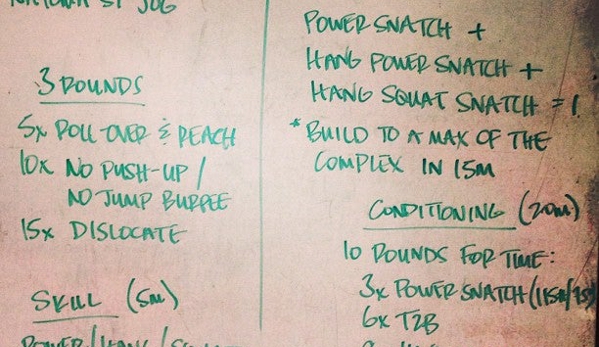 ST JOG
3 ROUNDS
5x ROLL-OVER & REACH
10x NO PUSH-UP /
NO JUMP BURPEE
15x DISLOCATE
SKILL (5M)
POWER/HANG/
POWER SNATCH +
HANG POWER SNATCH +
HANG SQUAT SNATCH = 1
* BUILD TO A MAX OF THE
COMPLEX IN 15M
CONDITIONING (20M)
10 ROUNDS FOR TIME:
3x POWER SNATCH
6x T2B